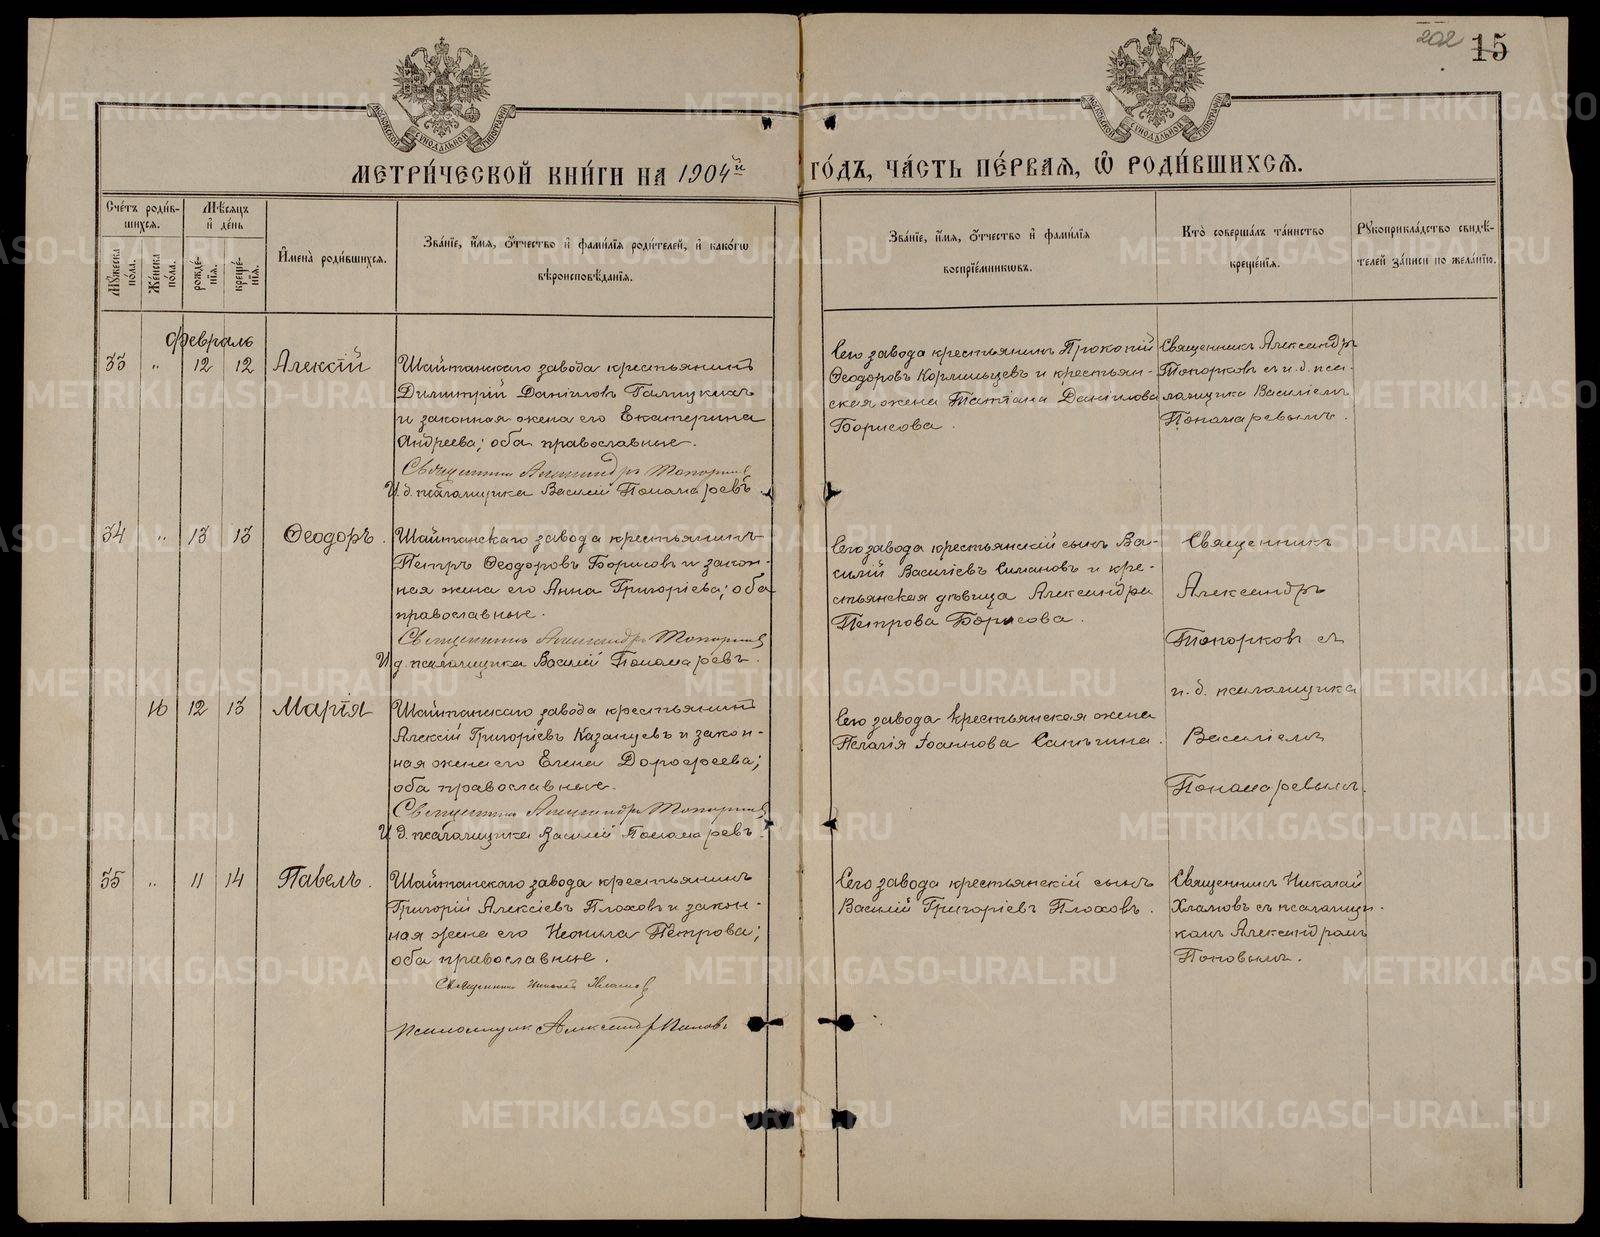 202 15
МЕТРИ́ЧЕСКОЙ КНИ́ГИ НА 1904й ГО́ДЪ, ЧА́СТЬ ПЕ́РВАЯ, Ѡ РОДИ́ВШИХСѦ.
Сче́тъ роди́в-
шихсѧ.
Мѣ́сѧцъ
и҆ де́нь
Мꙋ́жеска
по́ла.
Же́нска
по́ла.
рожде́-
нїѧ.
креще́-
нїѧ.
И҆мена̀ роди́вшихсѧ.
Зва́нїе, и҆́мѧ, ѻ҆́тчество и҆ фами́лїѧ роди́телей, и҆ како́гѡ
вѣроисповѣ́данїѧ.
Зва́нїе, и҆́мѧ, ѻ҆́тчество и҆ фами́лїѧ
воспрїе́мникѡвъ.
Кто̀ соверша́лъ та́инство
креще́нїѧ.
Рꙋкоприкла́дство свидѣ́-
телей за́писи по жела́нїю.
Февраль
33 " 12 12 Алексій
Шайтанскаго завода крестьянинъ
Димитрій Даніиловъ Галицкихъ
и законная жена его Екатерина
Андреева; оба православные.
Священникъ Александръ Топорковъ
И. д. псаломщика Василій Пономаревъ.
Сего завода крестьянинъ Прокопій
Ѳеодоровъ Кормильцевъ и крестьян-
ская жена Татіана Даніилова
Борисова.
Священникъ Александръ
Топорковъ съ и. д. пса-
ломщика Василіемъ
Пономаревымъ.
34 " 13 13 Ѳеодоръ.
Шайтанскаго завода крестьянинъ
Петръ Ѳеодоровъ Борисовъ и закон-
ная жена его Анна Григоріева; оба
православные.
Священникъ Александръ Топорковъ
И. д. псаломщика Василій Пономаревъ.
Сего завода крестьянскій сынъ Ва-
силій Василіевъ Симановъ и кре-
стьянская дѣвица Александра
Петрова Борисова.
Священникъ
Александръ
Топорковъ съ
и. д. псаломщика
Василіемъ
Пономаревымъ.
16 12 13 Марія
Шайтанскаго завода крестьянинъ
Алексій Григоріевъ Казанцевъ и закон-
ная жена его Елена Дорофеева;
оба православные.
Священникъ Александръ Топорковъ
И. д. псаломщика Василій Пономаревъ.
Сего завода крестьянская жена
Пелагія Іоаннова Сапегина.
35 " 11 14 Павелъ.
Шайтанскаго завода крестьянинъ
Григорій Алексіевъ Плоховъ и закон-
ная жена его Неонила Петрова;
оба православные.
Священникъ Николай Хламовъ
Псаломщикъ Александръ Поповъ
Сего завода крестьянскій сынъ
Василій Григоріевъ Плоховъ.
Священникъ Николай
Хламовъ съ псаломщи-
комъ Александромъ
Поповымъ.
METRIKI.GASO-URAL.RU